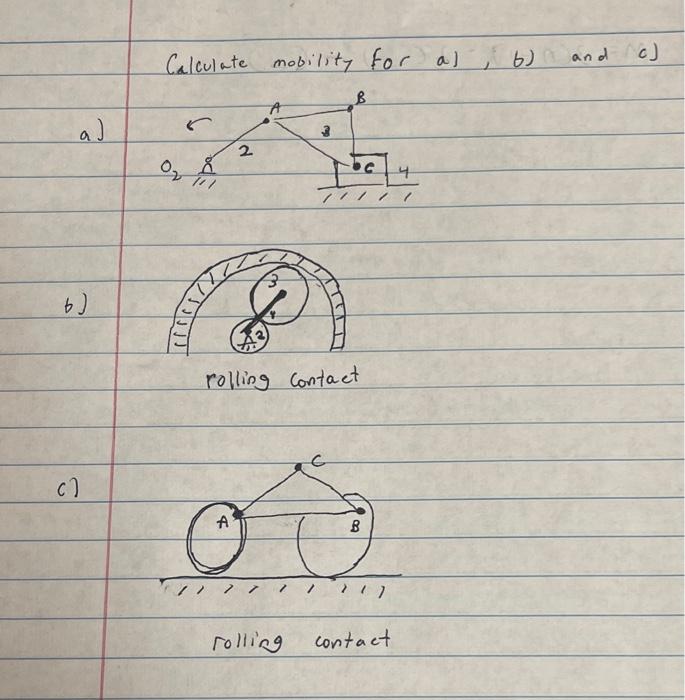 Calculate mobility for a) , b) and c)
a)
A
B
3
2
O2
C
4
b)
3
4
2
rolling contact
c)
C
A
B
rolling contact